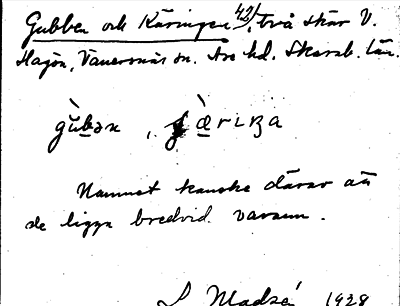 Gubben och Käringen 42/, två skär V.
Hagön, Vänersnäs sn. Åse hd. Skarab. län.
gu̠̇bən , ꞔæ̠̀riŋa
Namnet kanske därav att
de ligga bredvid varann.
1928